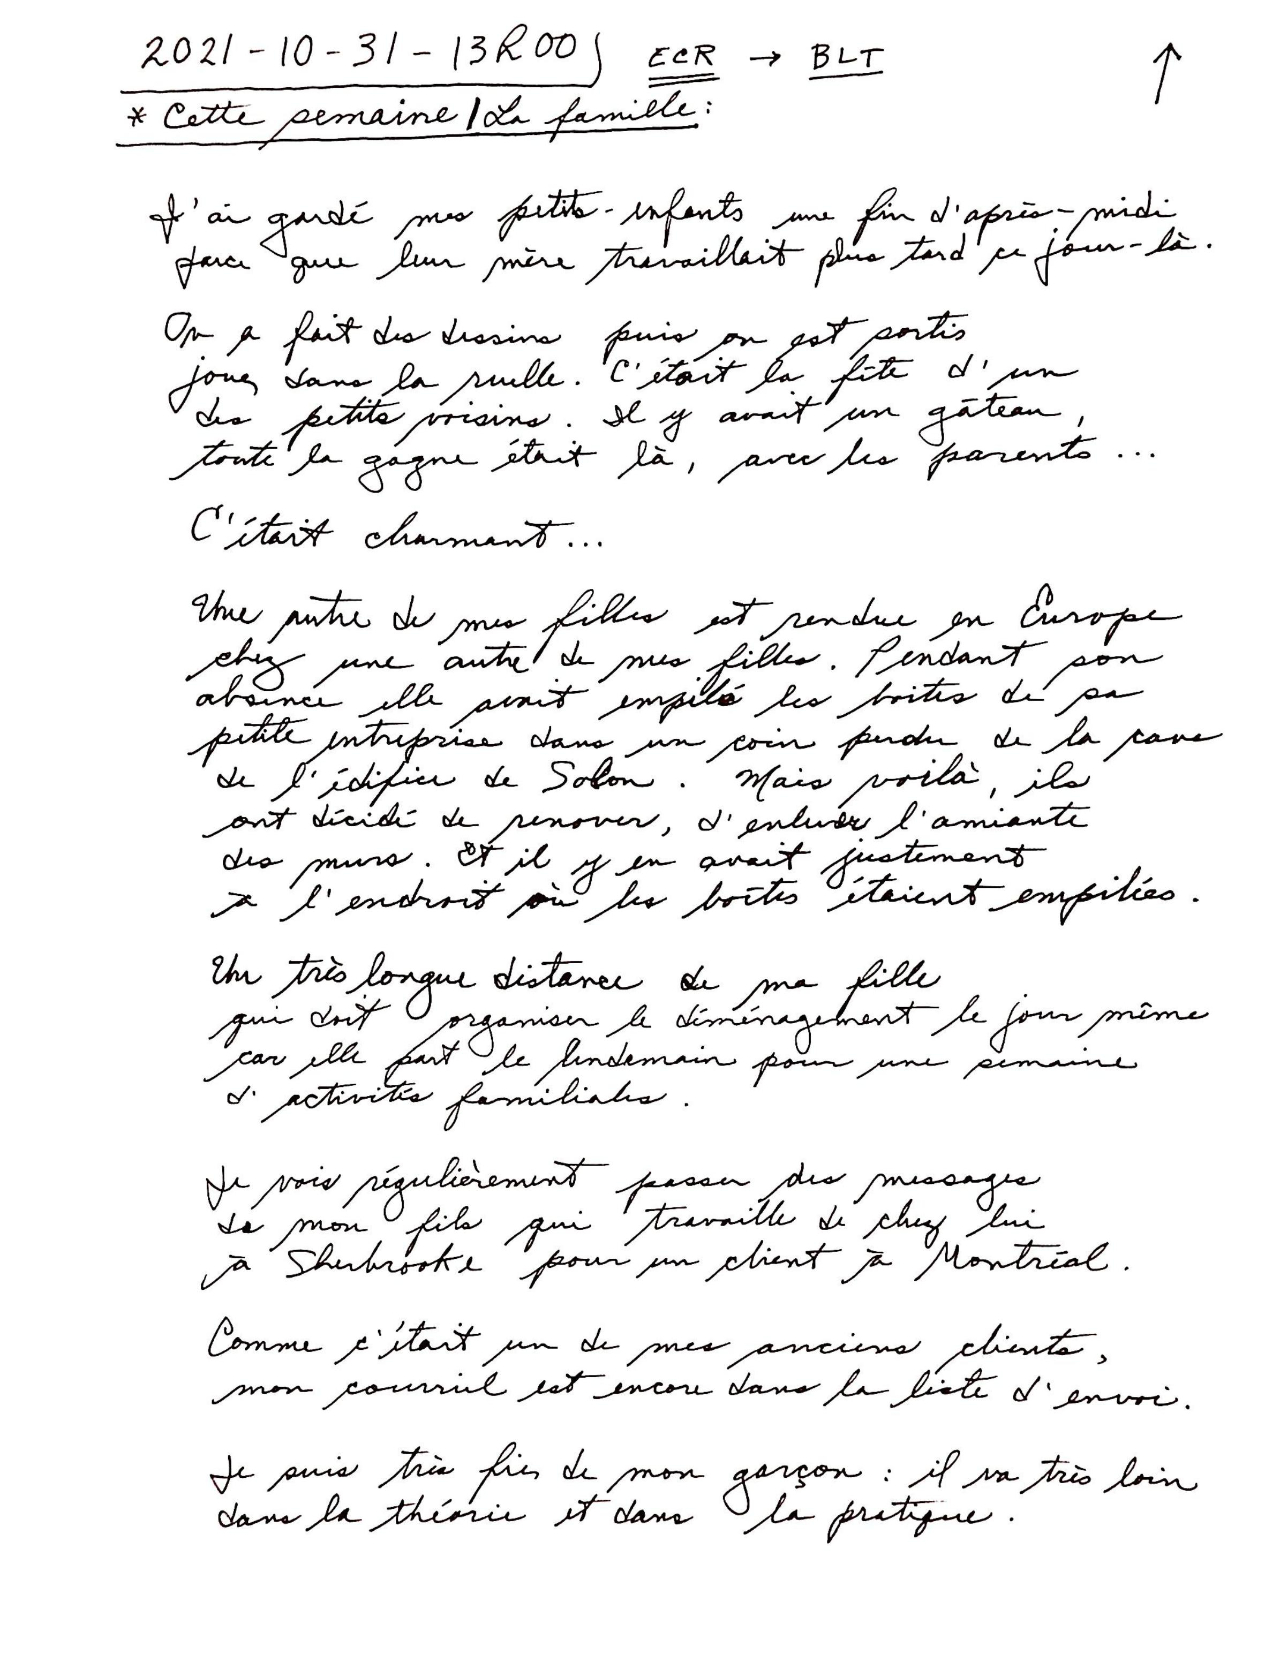 2021-10-31-13h00 ECR → BLT ↑
* Cette semaine / La famille :
J'ai gardé mes petits-enfants une fin d'après-midi
parce que leur mère travaillait plus tard ce jour-là.
On a fait des dessins puis on est sortis
jouer dans la ruelle. C'était la fête d'un
des petits voisins. Il y avait un gâteau,
toute la gagne était là, avec les parents...
C'était charmant...
Une autre de mes filles est rendue en Europe
chez une autre de mes filles. Pendant son
absence elle avait empilé les boites de sa
petite entreprise dans un coin perdu de la cave
de l'édifice de Solon. Mais voilà, ils
ont décidé de renover, d'enlever l'amiante
des murs. Et il y en avait justement
à l'endroit où les boîtes étaient empilées.
Un très longue distance de ma fille
qui doit organiser le déménagement le jour même
car elle part le lendemain pour une semaine
d'activités familiales.
Je vois régulièrement passer des messages
de mon fils qui travaille de chez lui
à Sherbrooke pour un client à Montréal.
Comme c'était un de mes anciens clients,
mon courriel est encore dans la liste d'envoi.
Je suis très fier de mon garçon : il va très loin
dans la théorie et dans la pratique.